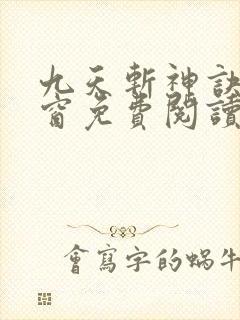 九天斬神訣
窗免費閱讀
會寫字的蝸牛